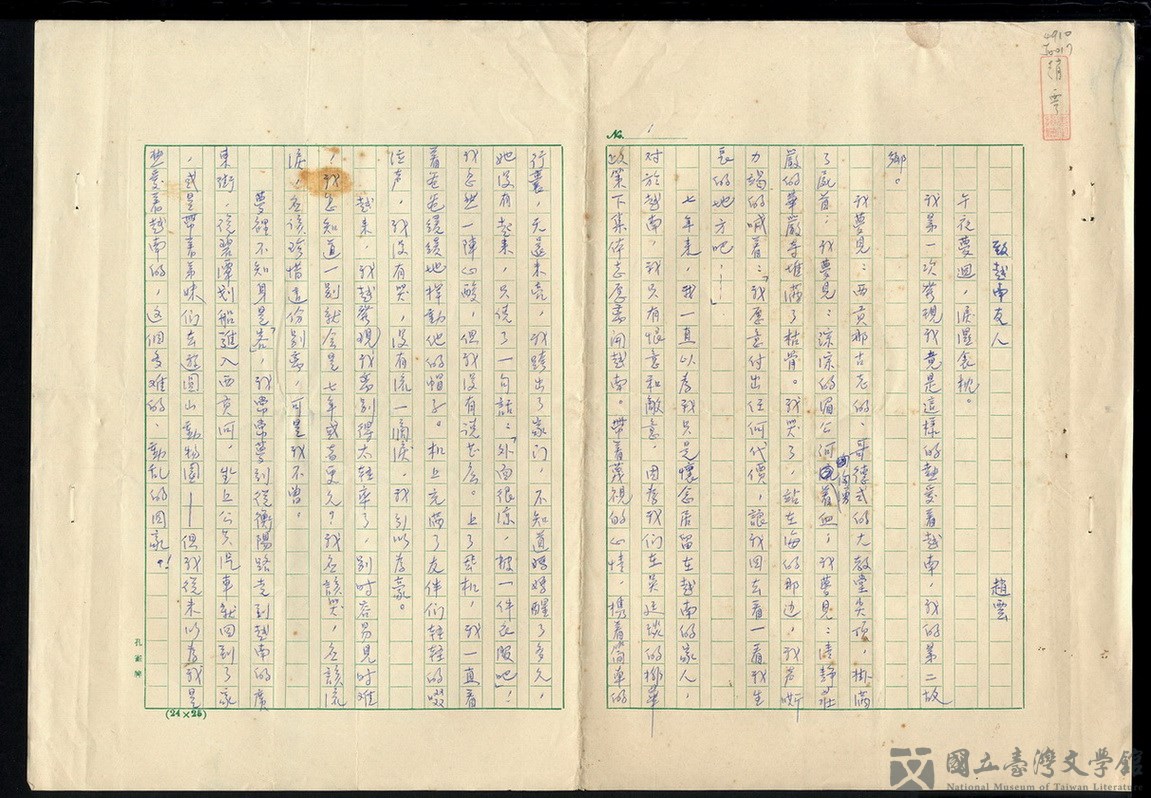 4910
趙雲
No. 1
致越南友人
趙雲
午夜夢迴，淚溼衾枕。
我第一次發現我竟是這樣的熱愛着越南，我的第二故
鄉。
我夢見：西貢那古老的、哥德式的大教堂尖頂，掛滿
了屍首；我夢見：涼涼的湄公河着血；我夢見：清靜莊
嚴的華嚴寺堆滿了枯骨。我哭了，站在海的那邊，我声嘶
力竭的喊着：「我願意付出任何代價，讓我回去看一看我生
長的地方吧！……」
七年來，我一直以為我只是懷念居留在越南的家人，
對於越南，我只有恨意和敵意，因為我們在吳廷琰的排華
政策下集体志願離開越南。帶着蔑視的心情，携着簡單的
行囊，天還未亮，我踏出了家门，不知道媽媽醒了多久，
她沒有起來，只說了一句話：「外面很涼，披一件衣服吧」！
我忽然一陣心酸，但我沒有說甚麼。上了飞机，我一直看
着爸爸緩緩地揮動他的帽子。机上充滿了友伴们輕輕的啜
泣声，我沒有哭，沒有流一滴淚，我引以為豪。
越來，我越發現我離別得太輕率了，別时容易見时难
！我怎知道一別就会是七年或者更久？我应該哭，应該流
淚，应該珍惜這份別离，可是我不曾。
夢裡不知身是客，我常常夢到從衡陽路走到越南的廣
東街，從碧潭划船進入西貢河，坐上公共汽車就回到了家
，或是帶着弟妹们去遊圓山動物園——但我從未以為我是
熱愛着越南的，這個多难的、動乱的国家！
(24×25)
國立臺灣文學館
National Museum of Taiwan Literature